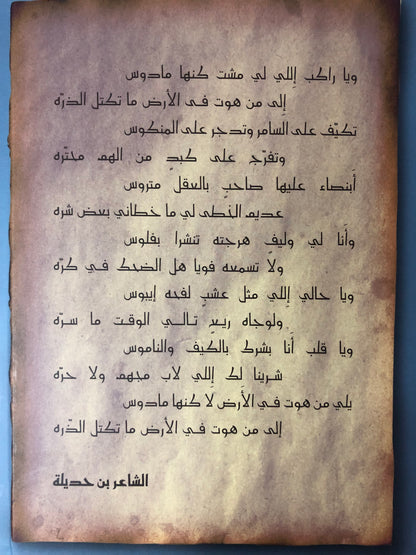 ويا راكب إللي لي مشت كنها مادوس
إلى من هوت في الأرض ما تكتل الذرّه
تكيّف على السامر وتدجر على المنكوس
وتفرّج على كبدٍ من الهم محترّه
أبنصاء عليها صاحبٍ بالعقل متروس
عديم الخطى لي ما خطاني بعض شره
وأنا لي وليف هرجته تنشرا بفلوس
ولا تسمعه فويا هل الضحك في كرّه
ويا حالي إللي مثل عشبٍ لفحه إيبوس
ولوجاه ربيعٍ تالي الوقت ما سرّه
ويا قلب أنا بشرط بالكيف والناموس
شرينا لك إللي لاب مجهم ولا حرّه
يلي من هوت في الأرض لا كنها مادوس
إلى من هوت في الأرض ما تكتل الذّره
الشاعر بن حديلة